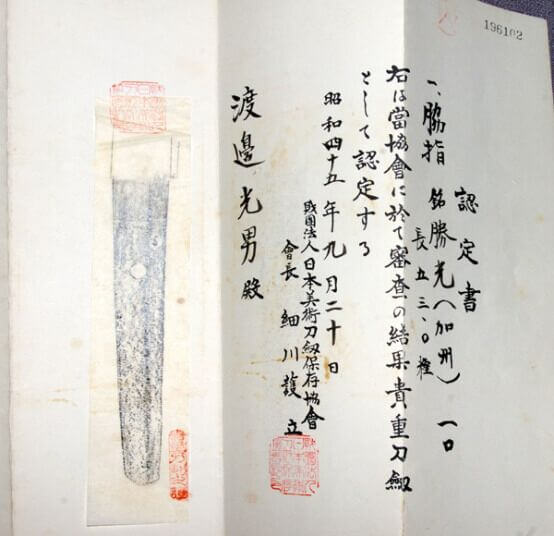 196102
認定書
一、脇指 銘 勝光(加州) 一口
長 五三、〇糎
右は當協會に於て審査の結果貴重刀劔
として認定する
昭和四十五年九月二十日
財團法人日本美術刀劔保存協會
會長 細川護立
渡邊光男殿